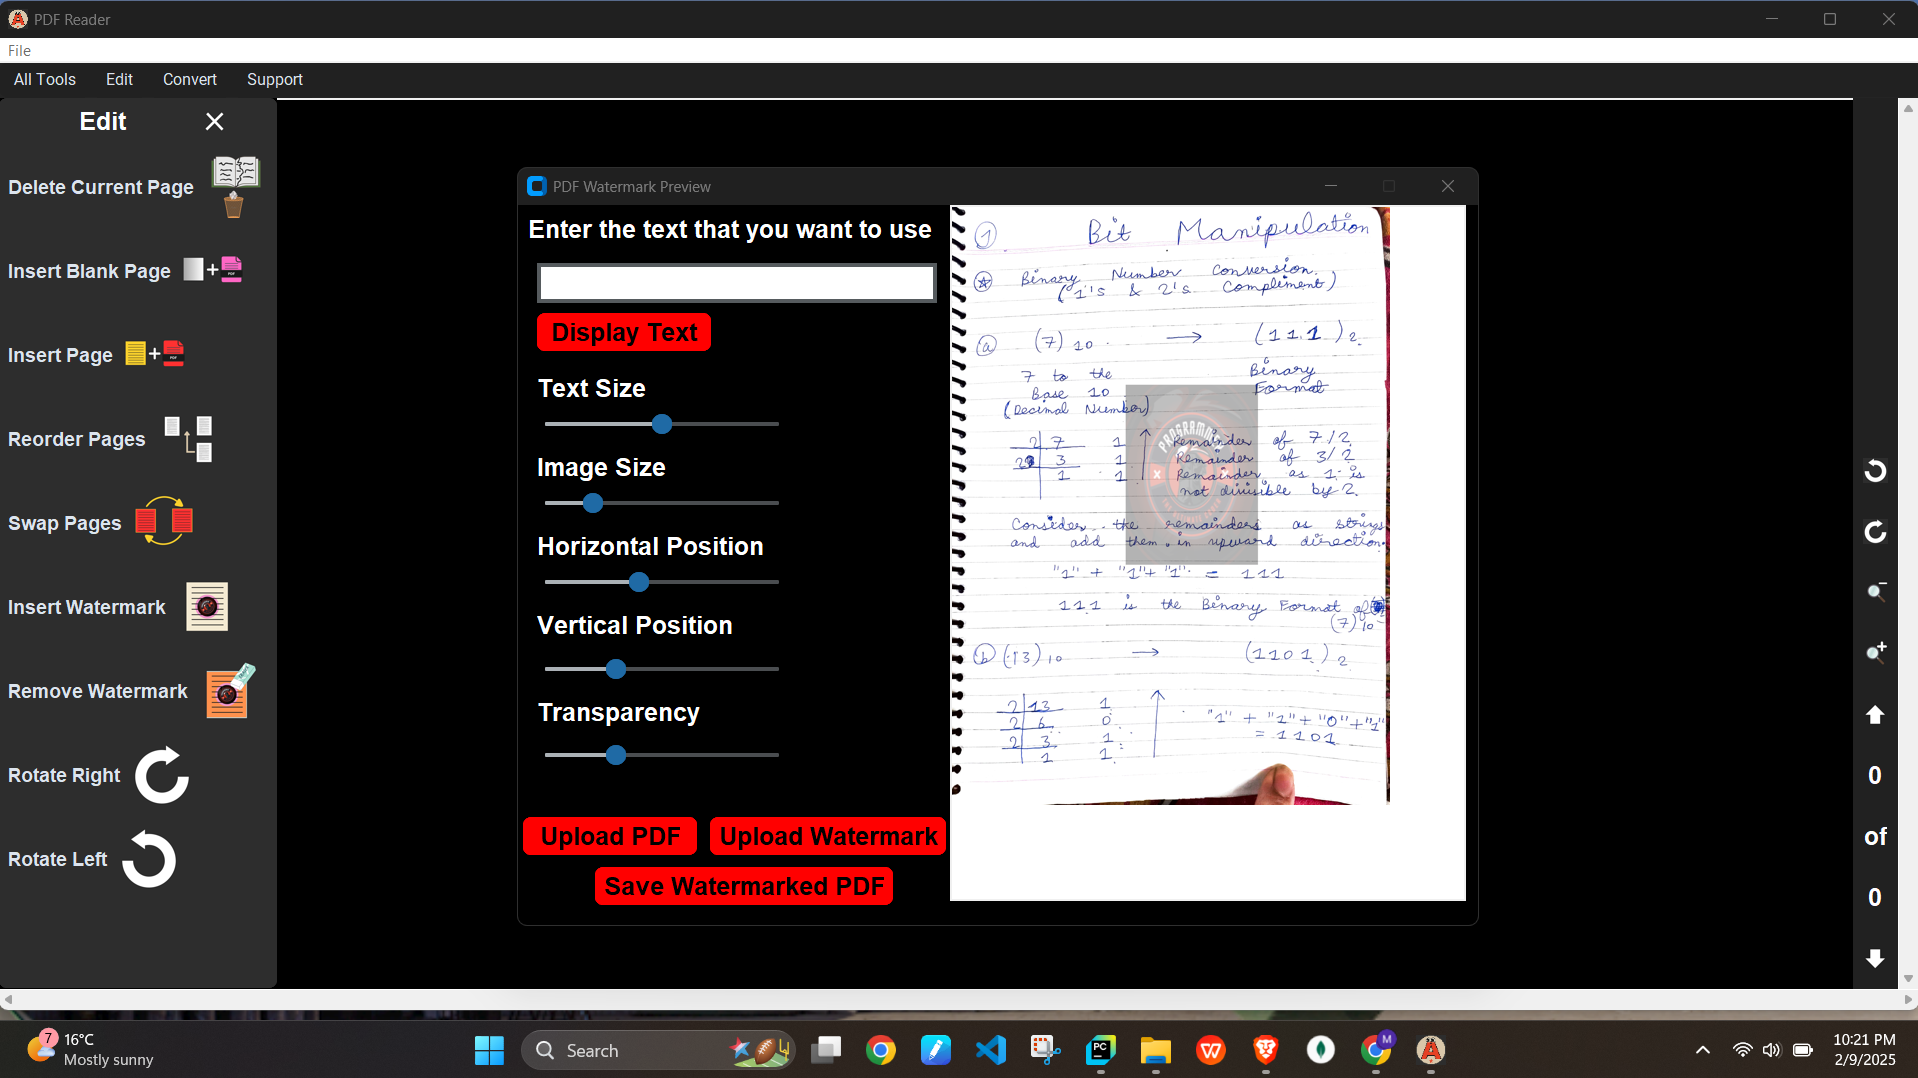 PDF Reader
File
All Tools Edit Convert Support
Edit
Delete Current Page
Insert Blank Page
Insert Page
Reorder Pages
Swap Pages
Insert Watermark
Remove Watermark
Rotate Right
Rotate Left
PDF Watermark Preview
Enter the text that you want to use
Display Text
Text Size
Image Size
Horizontal Position
Vertical Position
Transparency
Upload PDF Upload Watermark
Save Watermarked PDF
1 Bit Manipulation
Binary Number Conversion.
(1's & 2's Compliment)
a (7) 10 → (111)2.
7 to the Binary
Base 10 Format
(Decimal Number)
2 7 1 Remainder of 7/2
2 3 1 Remainder of 3/2
1 1 Remainder as 1 is
not divisible by 2.
Consider the remainders as strings
and add them in upward direction.
"1" + "1" + "1" = 111
111 is the Binary Format of
(7)10
b (13)10 → (1101)2
2 13 1
2 6 0 "1" + "1" + "0" + "1"
2 3 1 = 1101
1 1
0
of
0
7
16°C
Mostly sunny
Search
PC
M
10:21 PM
2/9/2025